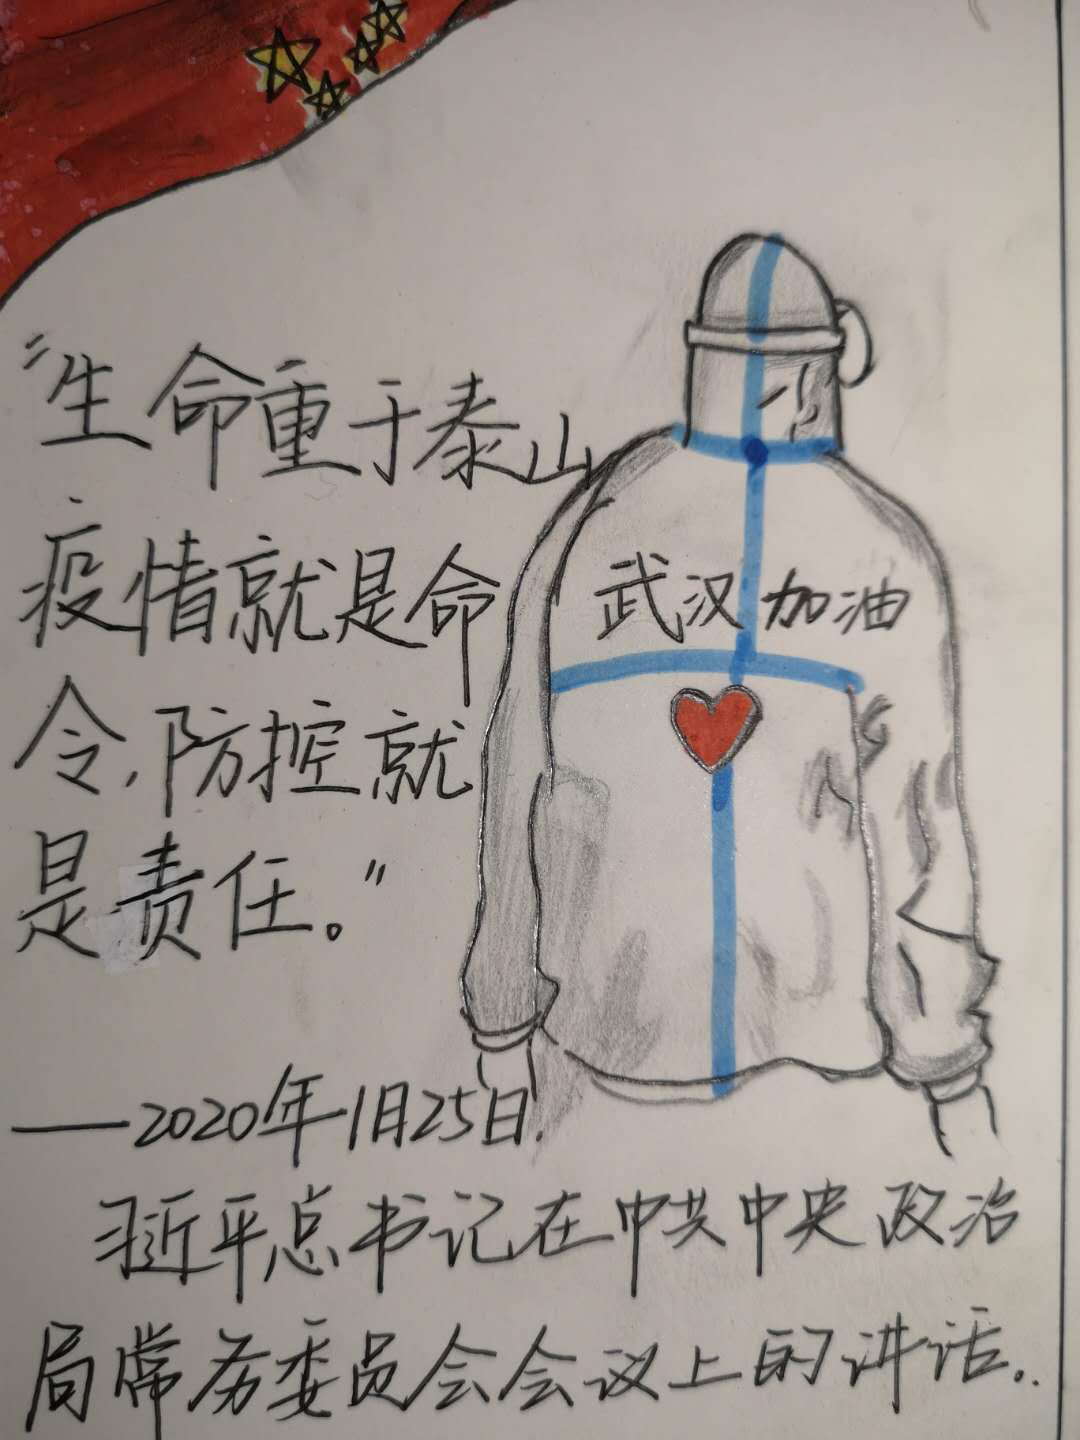 “生命重于泰山
疫情就是命
令,防控就
是责任。”
武汉加油
——2020年1月25日.
习近平总书记在中共中央政治
局常务委员会会议上的讲话..